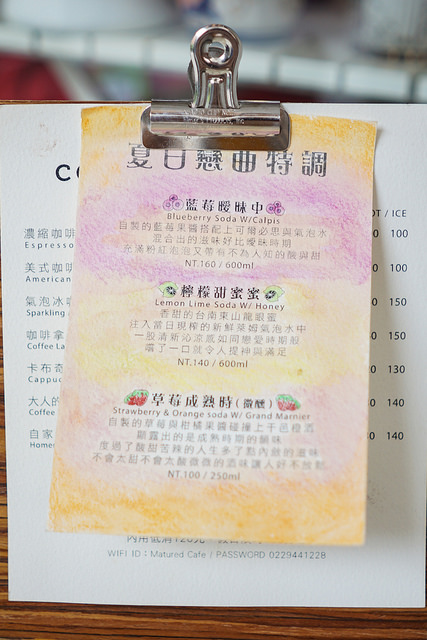 夏日戀曲特調
藍莓曖昧中
Blueberry Soda W/Calpis
自製的藍莓果醬搭配上可爾必思與氣泡水
混合出的滋味好比曖昧時期
充滿粉紅泡泡又帶有不為人知的酸與甜
NT.160 / 600ml
檸檬甜蜜蜜
Lemon Lime Soda W/ Honey
香甜的台南東山龍眼蜜
注入當日現榨的新鮮萊姆氣泡水中
一股清新沁涼感如同戀愛時期般
嚐了一口就令人提神與滿足
NT.140 / 600ml
草莓成熟時(微醺)
Strawberry & Orange soda W/ Grand Marnier
自製的草莓與柑橘果醬碰撞上干邑橙酒
顯露出的是成熟時期的韻味
度過了酸甜苦辣的人生多了點內斂的滋味
不會太甜不會太酸微微的酒味讓人好不放鬆
NT.100 / 250ml
OT / ICE
濃縮咖啡 100
Espresso
美式咖啡 100
American
氣泡冰咖 150
Sparkling
咖啡拿 150
Coffee La
卡布奇 130
Cappuc
大人的 140
Coffee
自家 140
Home
WIFI ID：Matured Cafe / PASSWORD 0229441228